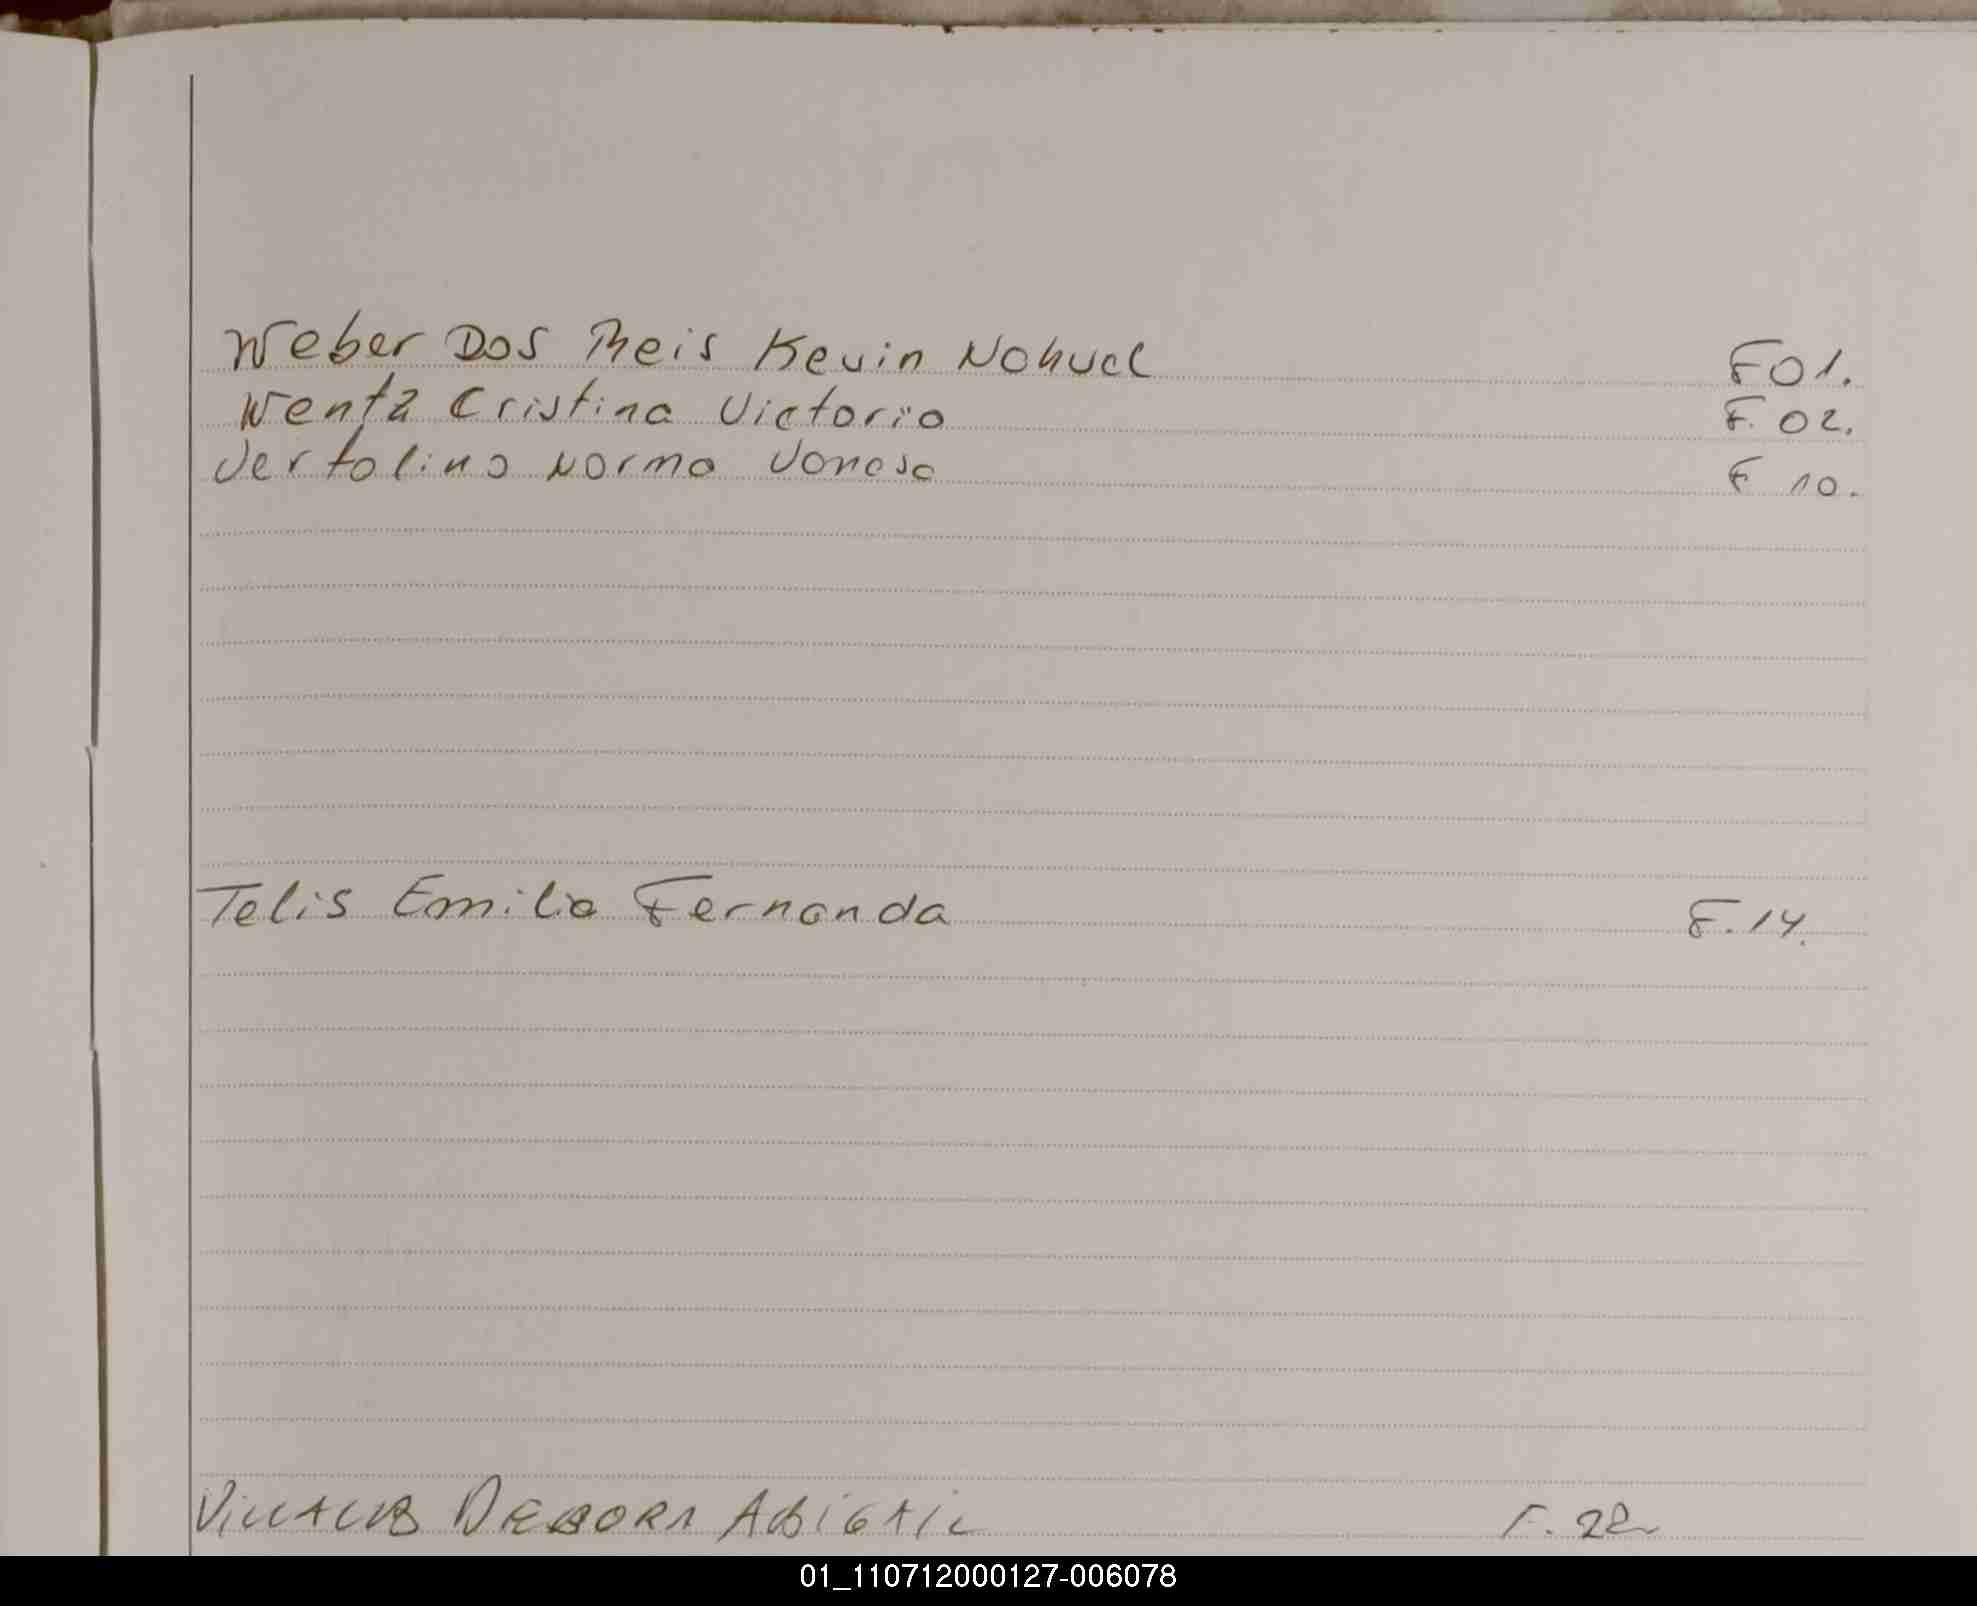 Weber Dos Reis Kevin Nahuel F01.
Wentz Cristina Victoria F. 02.
Vertolino Norma Vanesa F 10.
Telis Emilia Fernanda F. 14.
DEBORA ABIGAIL F. 22
01_110712000127-006078